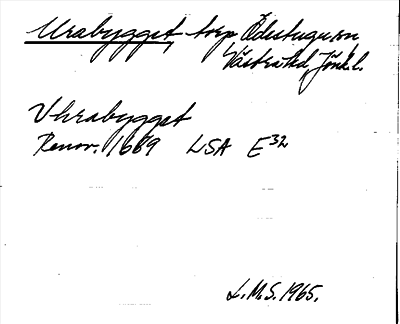 Urabygget, torp Ödestugu sn
Västra hd, Jönk.l.
Uhrabygget
Renov. 1689 LSA E32
L.M.S. 1965.